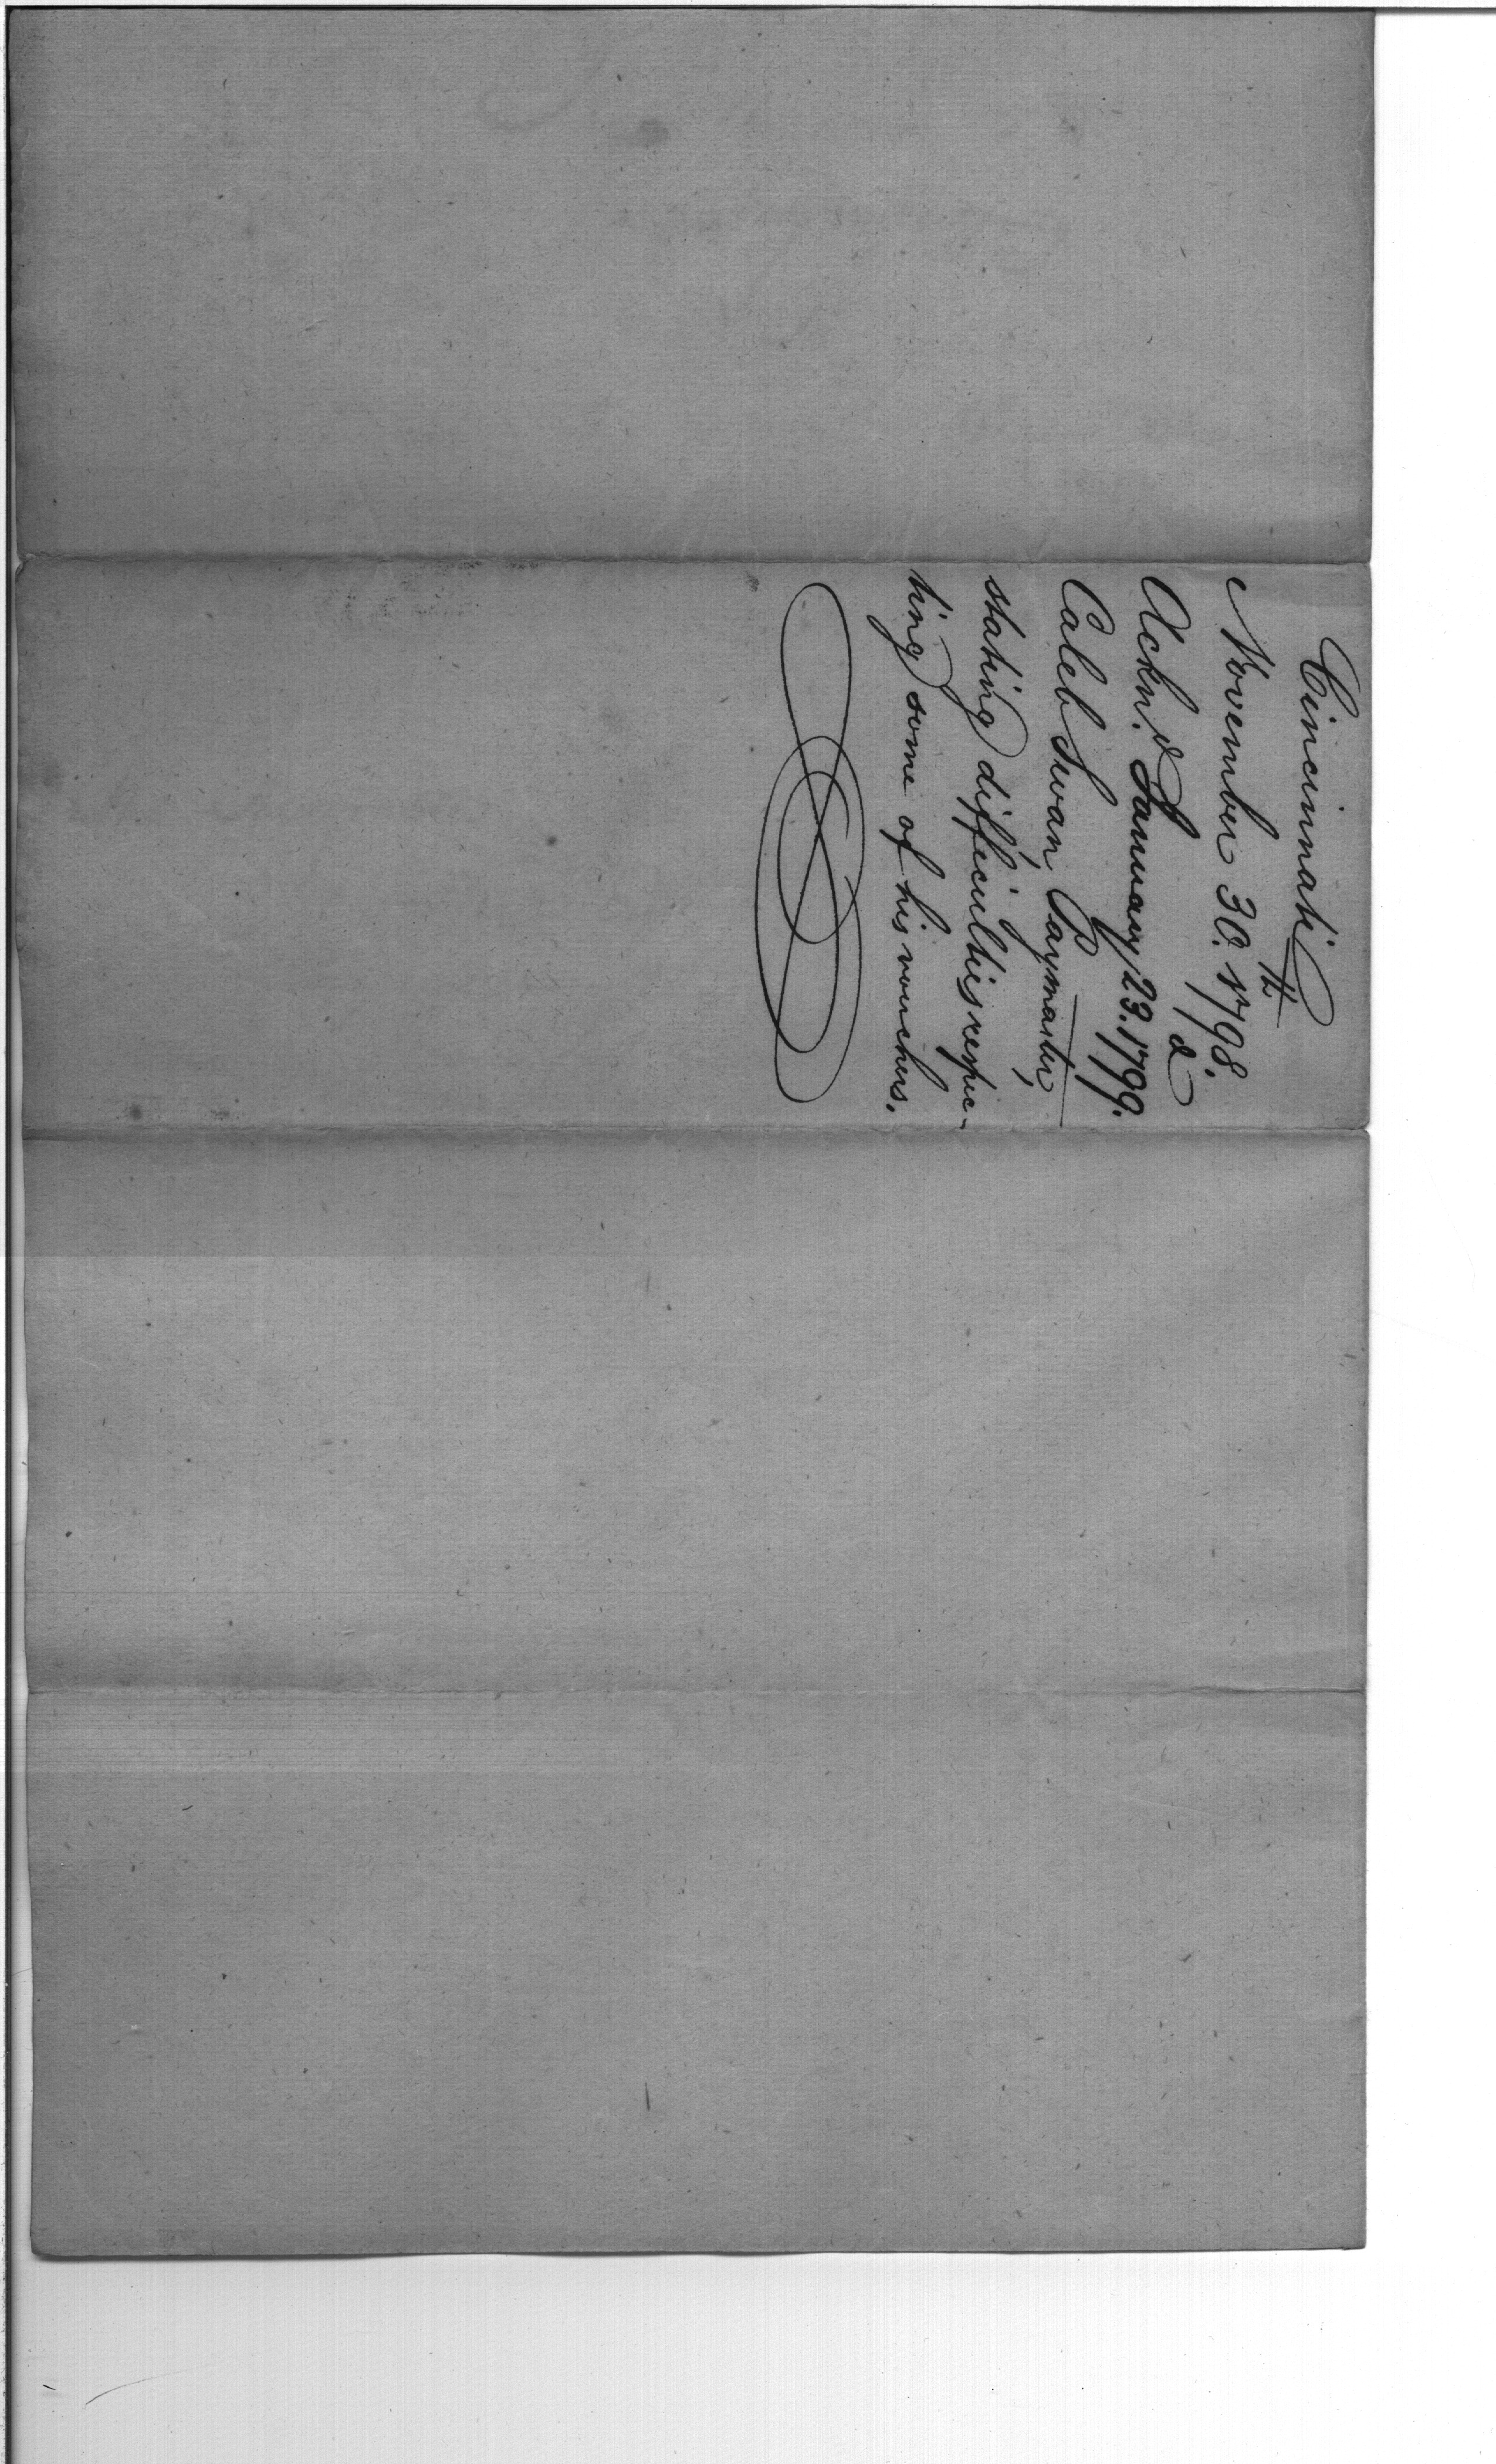 Cincinnati
November 30.th 1798.
Ackn.d January 23.d 1799.
Caleb Swan, Paymaster,
stating difficulties respec-
ting some of his vouchers.